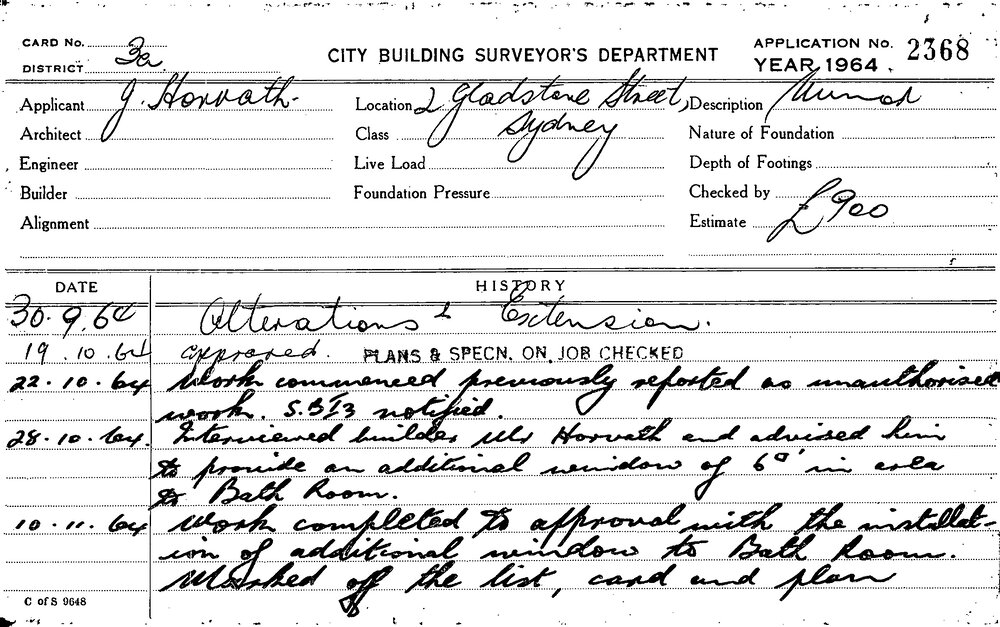 CARD No.
DISTRICT 3a
CITY BUILDING SURVEYOR'S DEPARTMENT
APPLICATION No. 2368
YEAR 1964
Applicant J. Horvath.
Location 2 Gladstone Street, Sydney
Description Minor
Architect
Class
Nature of Foundation
Engineer
Live Load
Depth of Footings
Builder
Foundation Pressure
Checked by
Alignment
Estimate £900
DATE HISTORY
30.9.64 Alterations & Extension.
19.10.64 approved. PLANS & SPECN. ON JOB CHECKED
22.10.64 Work commenced previously reported as unauthorised
work. notified.
28.10.64. Interviewed builder Mr Horvath and advised him
to provide an additional window of 6□' in area
to Bath Room.
10.11.64 Work completed to approval with the installat-
ion of additional window to Bath Room.
Marked off the list, card and plan
C of S 9648